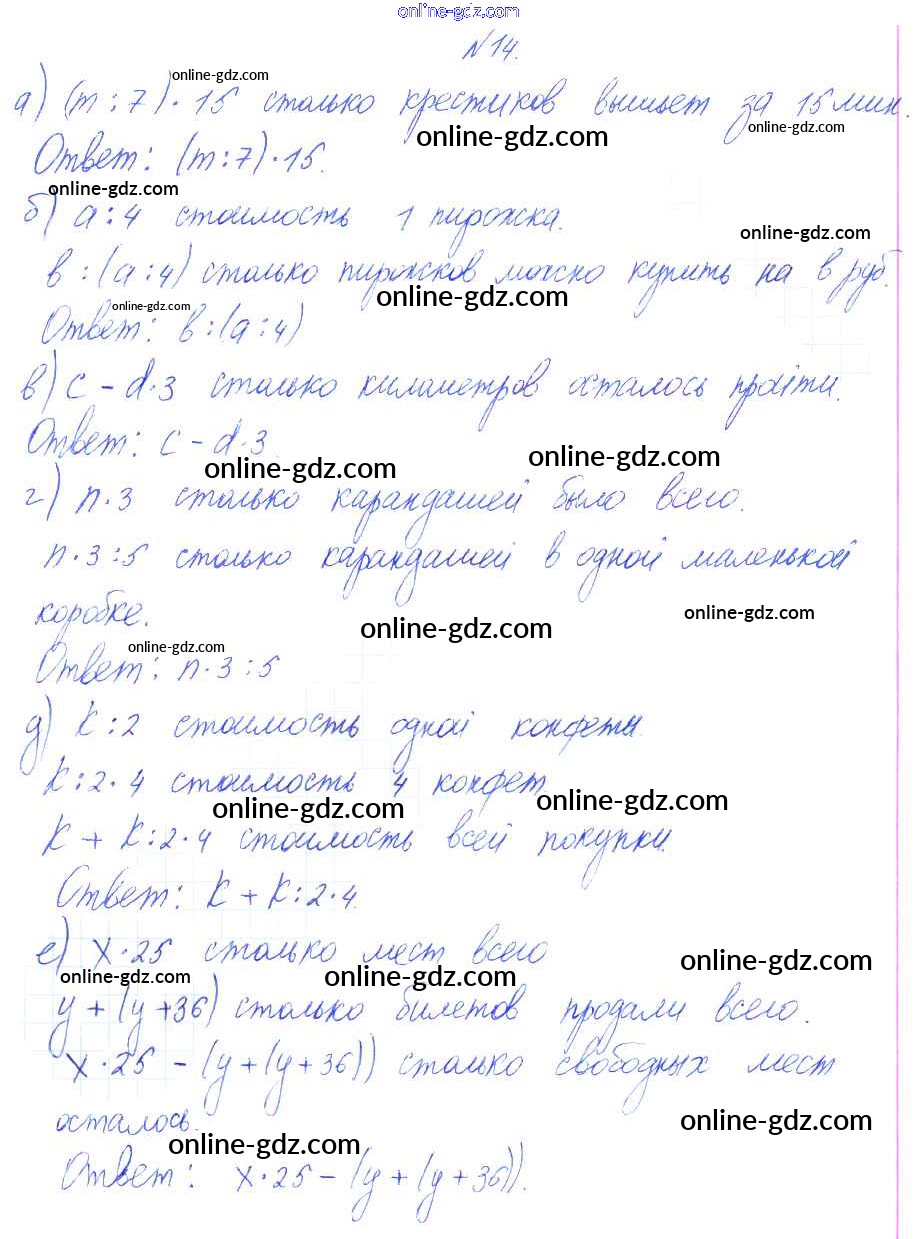 online-gdz.com
№14.
online-gdz.com
а) (m : 7) · 15 столько крестиков вышьет за 15 мин.
online-gdz.com online-gdz.com
Ответ: (m : 7) · 15.
online-gdz.com
б) a : 4 стоимость 1 пирожка.
online-gdz.com
в : (a : 4) столько пирожков можно купить на в руб.
online-gdz.com online-gdz.com
Ответ: в : (a : 4)
в) c - d · 3 столько километров осталось пройти.
Ответ: c - d · 3
online-gdz.com online-gdz.com
г) n · 3 столько карандашей было всего.
n · 3 : 5 столько карандашей в одной маленькой
коробке.
online-gdz.com online-gdz.com
online-gdz.com
Ответ: n · 3 : 5
д) k : 2 стоимость одной конфеты.
k : 2 · 4 стоимость 4 конфет
online-gdz.com online-gdz.com
k + k : 2 · 4 стоимость всей покупки.
Ответ: k + k : 2 · 4.
е) x · 25 столько мест всего
online-gdz.com online-gdz.com online-gdz.com
y + (y + 36) столько билетов продали всего.
x · 25 - (y + (y + 36)) столько свободных мест
осталось.
online-gdz.com online-gdz.com
Ответ: x · 25 - (y + (y + 36)).
online-gdz.com